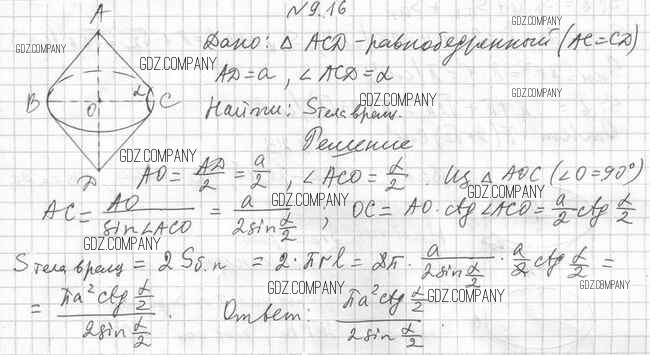 №9.16
A
Дано: △ ACD - равнобедренный (AC=CD)
AD=a, ∠ACD=α
Найти: Sтела вращ.
Решение
B O α C
D
AO = AD/2 = a/2, ∠ACO = α/2. Из △ AOC (∠O=90°)
AC = AO/sin∠ACO = a/(2sin α/2), OC = AO·ctg∠ACO = a/2 ctg α/2
Sтела вращ = 2Sб.п = 2·πrl = 2π · a/(2sin α/2) · a/2 ctg α/2 =
= πa² ctg α/2 / (2sin α/2). Ответ: πa² ctg α/2 / (2sin α/2).
GDZ.COMPANY
GDZ.COMPANY
GDZ.COMPANY
GDZ.COMPANY
GDZ.COMPANY
GDZ.COMPANY
GDZ.COMPANY
GDZ.COMPANY
GDZ.COMPANY
GDZ.COMPANY
GDZ.COMPANY
GDZ.COMPANY